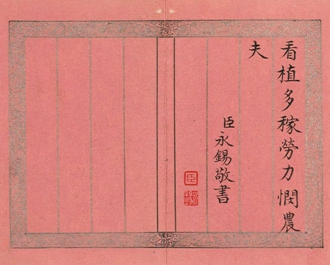 看植多稼勞力憫農
夫
臣永錫敬書
臣